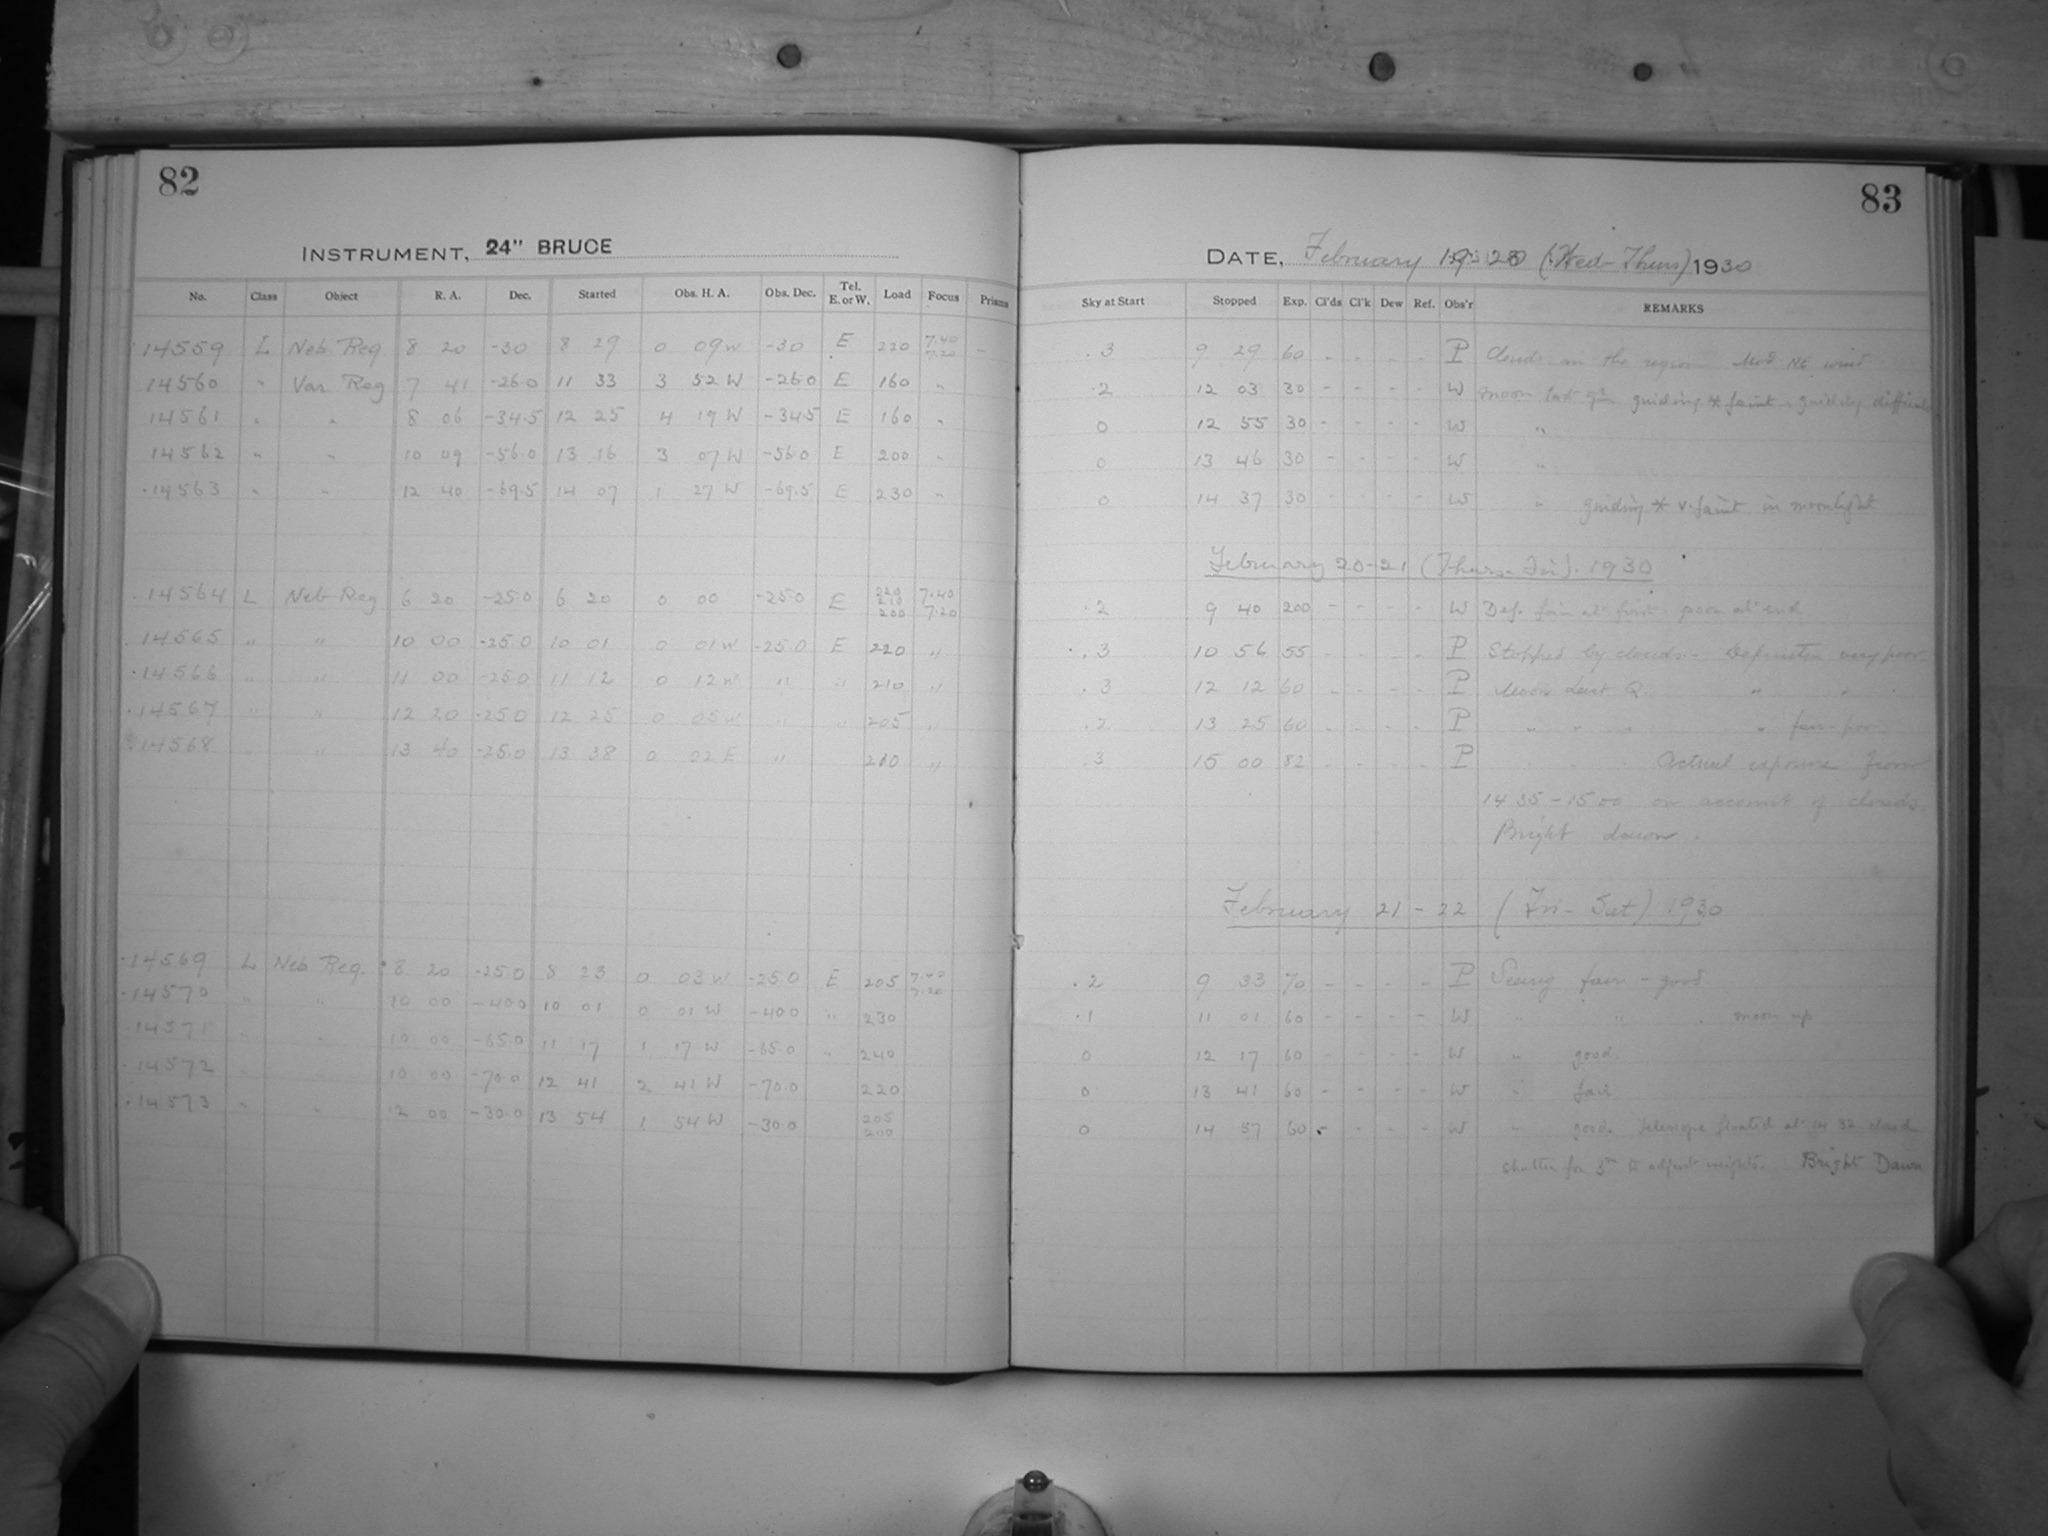 82
INSTRUMENT, 24" BRUCE
No. Class Object R. A. Dec. Started Obs. H. A. Obs. Dec. Tel. E. or W. Load Focus Prisms
14559 L Neb Reg 8 20 -30 8 29 0 09 W -30 E 220 7.40 7.20 -
14560 " Var Reg 7 41 -26.0 11 33 3 52 W -26.0 E 160 "
14561 " " 8 06 -34.5 12 25 4 19 W -34.5 E 160 "
14562 " " 10 09 -56.0 13 16 3 07 W -56.0 E 200 "
14563 " " 12 40 -69.5 14 07 1 27 W -69.5 E 230 "
14564 L Neb Reg 6 20 -25.0 6 20 0 00 -25.0 E 220 210 200 7.40 7.20
14565 " " 10 00 -25.0 10 01 0 01 W -25.0 E 220 "
14566 " " 11 00 -25.0 11 12 0 12 W " " 210 "
14567 " " 12 20 -25.0 12 25 0 05 W " " 205 "
14568 " " 13 40 -25.0 13 38 0 02 E " 210 "
14569 L Neb Reg. 8 20 -25.0 8 23 0 03 W -25.0 E 205 7.40 7.20
14570 " " 10 00 -40.0 10 01 0 01 W -40.0 " 230
14571 " " 10 00 -65.0 11 17 1 17 W -65.0 " 240
14572 " " 10 00 -70.0 12 41 2 41 W -70.0 220
14573 " " 12 00 -30.0 13 54 1 54 W -30.0 205 200
83
DATE, February 19-20 (Wed-Thurs) 1930
Sky at Start Stopped Exp. Cl'ds Cl'k Dew Ref. Obs'r REMARKS
.3 9 29 60 - - - - P Clouds in the region Mod NE wind
.2 12 03 30 - - - - W moon last qr guiding * faint guiding difficult
0 12 55 30 - - - - W "
0 13 46 30 - - - - W "
0 14 37 30 - - - - W " guiding * v. faint in moonlight
February 20-21 (Thurs-Fri). 1930
.2 9 40 200 - - - - W Def. fair at first poor at end
.3 10 56 55 - - - - P Stopped by clouds - Definition very poor
.3 12 12 60 - - - - P Moon Last Q. " " "
.2 13 25 60 - - - - P " " " " fair-poor
.3 15 00 82 - - - - P " " " Actual exposure from
14 35 - 15 00 on account of clouds.
Bright dawn.
February 21-22 (Fri-Sat) 1930
.2 9 33 70 - - - - P Seeing fair - good
.1 11 01 60 - - - - W " " moon up
0 12 17 60 - - - - W " good.
0 13 41 60 - - - - W " fair
0 14 57 60 - - - - W " good. Telescope floated at 14 32 closed
shutter for 3m to adjust weights. Bright Dawn